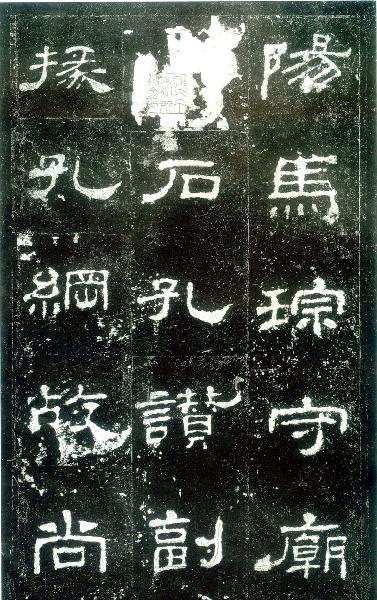 陽馬琮守廟
石孔讃副
掾孔綱故尚